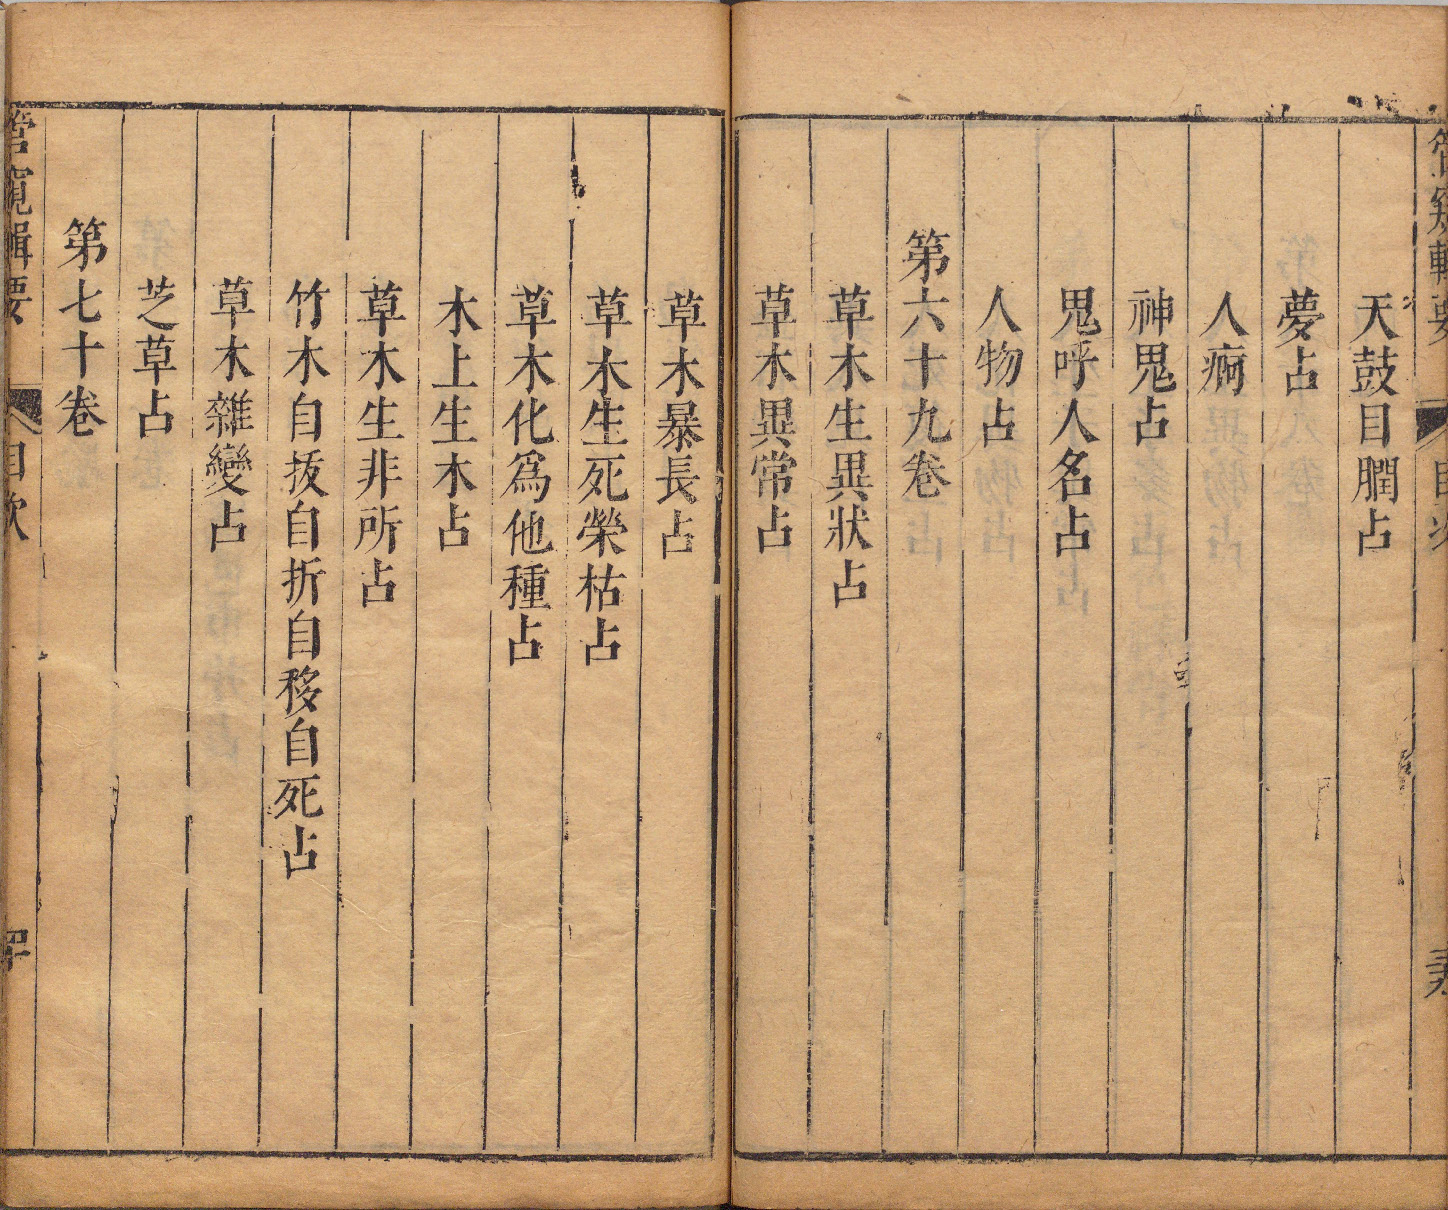 天鼓目膶占
夢占
人痾占
神鬼占
鬼呼人名占
人物占
第六十九卷
草木生異狀占
草木異常占
草木暴長占
草木生死榮枯占
草木化爲他種占
木上生木占
草木生非所占
竹木自拔自折自移自死占
草木雜變占
芝草占
第七十卷
管窺輯要
目次